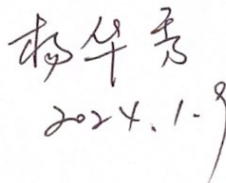 杨华秀
2024.1.9